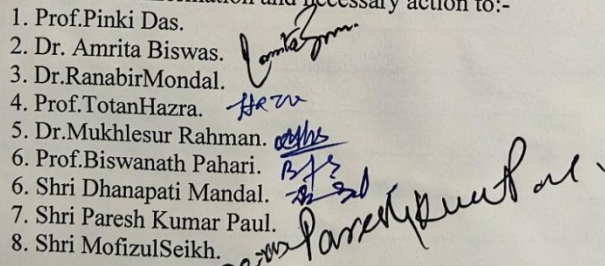 information and necessary action to:-
1. Prof.Pinki Das.
2. Dr. Amrita Biswas.
3. Dr.RanabirMondal.
4. Prof.TotanHazra. Hazra
5. Dr.Mukhlesur Rahman.
6. Prof.Biswanath Pahari.
6. Shri Dhanapati Mandal.
7. Shri Paresh Kumar Paul. Paresh Kumar Paul
8. Shri MofizulSeikh.